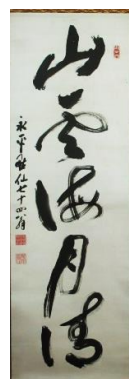 山雲海月情
永平黙仙七十四翁